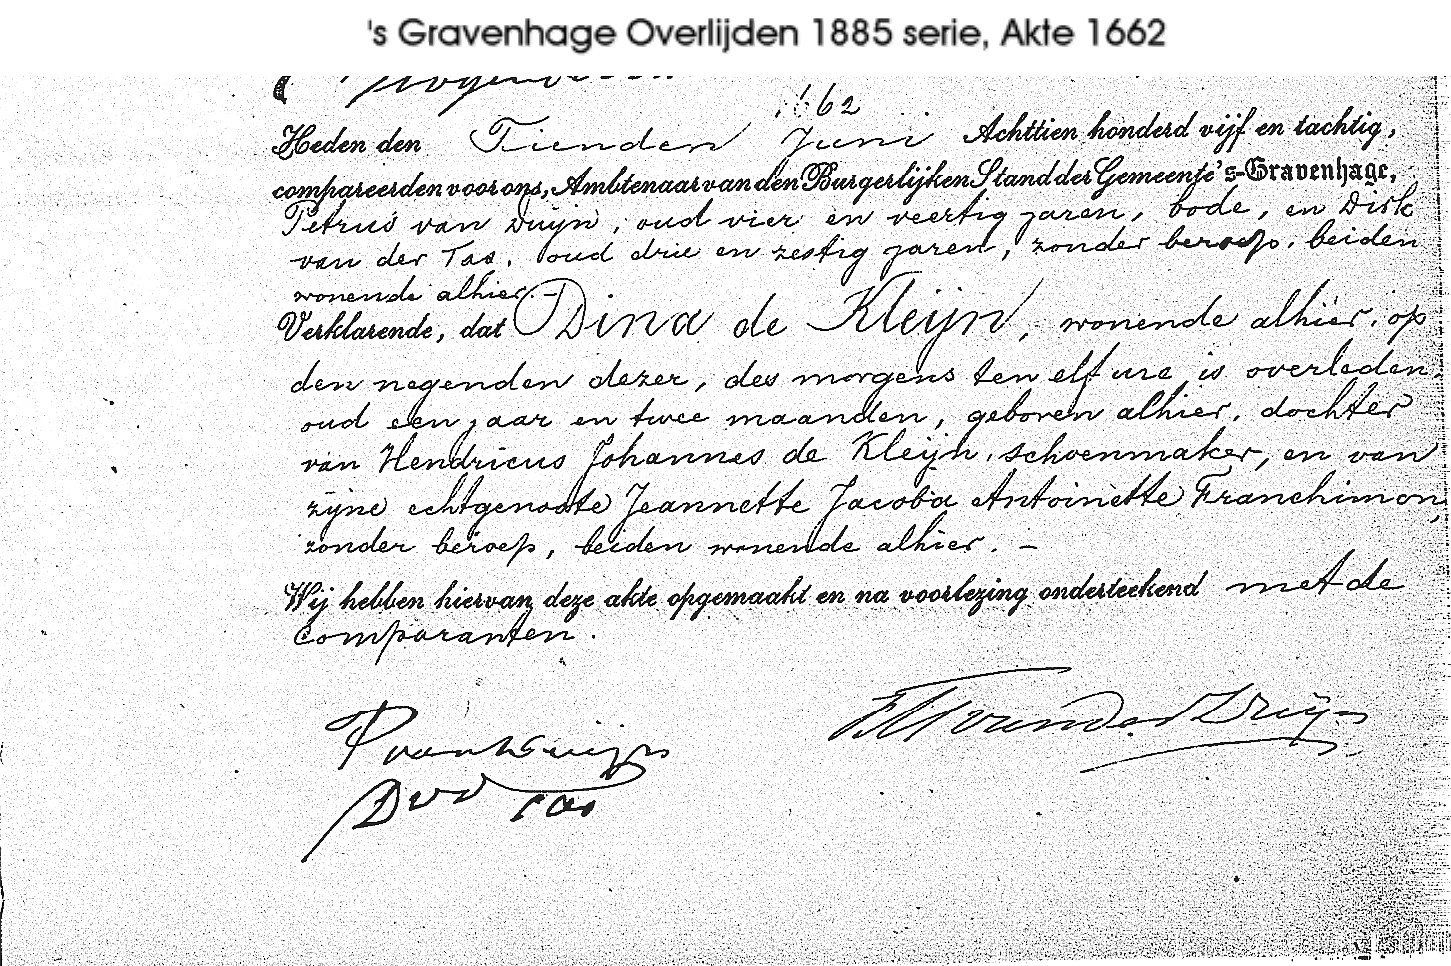 's Gravenhage Overlijden 1885 serie, Akte 1662
1662
Heden den Tienden Juni Achttien honderd vijf en tachtig,
compareerden voor ons, Ambtenaar van den Burgerlijken Stand der Gemeente 's-Gravenhage,
Petrus van Duijn, oud vier en veertig jaren, bode, en Dirk
van der Tas, oud drie en zestig jaren, zonder beroep, beiden
wonende alhier. –
Verklarende, dat Dina de Kleijn, wonende alhier, op
den negenden dezer, des morgens ten elf ure is overleden
oud een jaar en twee maanden, geboren alhier, dochter
van Hendricus Johannes de Kleijn, schoenmaker, en van
zijne echtgenoote Jeannette Jacoba Antoinette Franchimon,
zonder beroep, beiden wonende alhier. –
Wij hebben hiervan deze akte opgemaakt en na voorlezing onderteekend met de
comparanten.
P van Duijn
D v d Tas